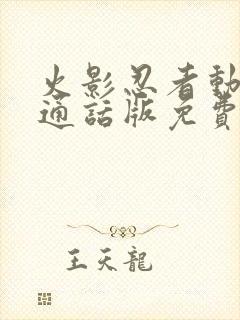 火影忍者動
通話版免費
王天龍